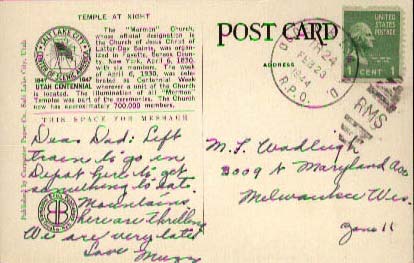 TEMPLE AT NIGHT
The "Mormon" Church,
whose official designation is
the Church of Jesus Christ of
Latter-Day Saints, was organ-
ized in Fayette, Seneca Coun-
ty, New York, April 6, 1830,
with six members. The week
of April 6, 1930, was cele-
brated as Centennial Week
wherever a unit of the Church
is located. The illumination of all "Mormon"
Temples was part of the ceremonies. The Church
now has approximately 700,000 members.
SALT LAKE CITY
CENTER OF SCENIC AMERICA
1847 1947
UTAH CENTENNIAL
THIS SPACE FOR MESSAGE
Published by Deseret Book Co., Salt Lake City, Utah
Dear Dad: Left
train to go in
Depot here to get
something to eat.
Mountains
here are thrilling
We are very late
Love Muzzy
POST CARD
ADDRESS
TR 24
FEB 23
1944
R.P.O.
RMS
UNITED STATES
POSTAGE
1 CENT 1
M. F. Wadleigh
3009 N Maryland Ave
Milwaukee Wis.
Zone 11